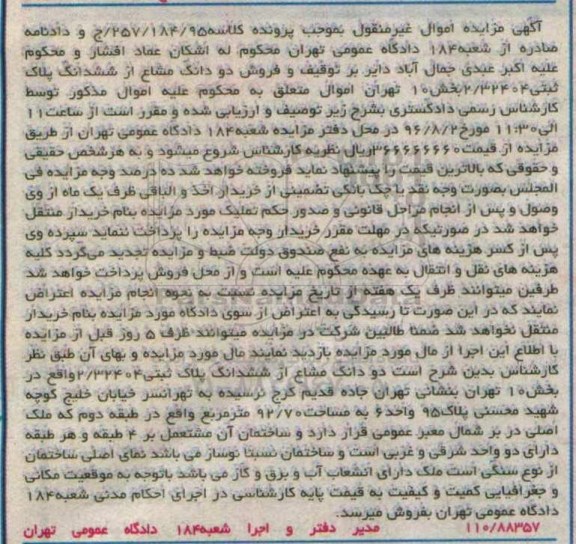 آگهی مزایده اموال غیرمنقول بموجب پرونده کلاسه۲۵۷/۱۸۴/۹۵/ج و دادنامه
صادره از شعبه۱۸۴ دادگاه عمومی تهران محکوم له اشکان عماد افشار و محکوم
علیه اکبر عبدی جمال آباد دایر بر توقیف و فروش دو دانگ مشاع از ششدانگ پلاک
ثبتی۲/۳۲۴۰۴بخش۱۰ تهران اموال متعلق به محکوم علیه اموال مذکور توسط
کارشناس رسمی دادگستری بشرح زیر توصیف و ارزیابی شده و مقرر است از ساعت۱۱
الی۱۱:۳۰ مورخ۹۶/۸/۲ در محل دفتر مزایده شعبه۱۸۴ دادگاه عمومی تهران از طریق
مزایده از قیمت ریال نظریه کارشناس شروع میشود و به هرشخص حقیقی
و حقوقی که بالاترین قیمت را پیشنهاد نماید فروخته خواهد شد ده درصد وجه مزایده فی
المجلس بصورت وجه نقد یا چک بانکی تضمینی از خریدار اخذ و الباقی ظرف یک ماه از وی
وصول و پس از انجام مراحل قانونی و صدور حکم تملیک مورد مزایده بنام خریدار منتقل
خواهد شد در صورتیکه در مهلت مقرر خریدار وجه مزایده را پرداخت ننماید سپرده وی
پس از کسر هزینه های مزایده به نفع صندوق دولت ضبط و مزایده تجدید می‌گردد کلیه
هزینه های نقل و انتقال به عهده محکوم علیه است و از محل فروش پرداخت خواهد شد
طرفین میتوانند ظرف یک هفته از تاریخ مزایده نسبت به نحوه انجام مزایده اعتراض
نمایند که در این صورت تا رسیدگی به اعتراض از سوی دادگاه مورد مزایده بنام خریدار
منتقل نخواهد شد ضمنا طالبین شرکت در مزایده میتوانند ظرف ۵ روز قبل از مزایده
با اطلاع این اجرا از مال مورد مزایده بازدید نمایند مال مورد مزایده و بهای آن طبق نظر
کارشناس بدین شرح است دو دانگ مشاع از ششدانگ پلاک ثبتی۲/۳۲۴۰۴واقع در
بخش۱۰ تهران بنشانی تهران جاده قدیم کرج نرسیده به تهرانسر خیابان خلیج کوچه
شهید محسنی پلاک۹۵ واحد۶ به مساحت۹۲/۷۰ مترمربع واقع در طبقه دوم که ملک
اصلی در بر شمال معبر عمومی قرار دارد و ساختمان آن مشتمل بر ۴ طبقه و هر طبقه
دارای دو واحد شرقی و غربی است و ساختمان نسبتا نوساز می باشد نمای اصلی ساختمان
از نوع سنگی است ملک دارای انشعاب آب و برق و گاز می باشد باتوجه به موقعیت مکانی
و جغرافیایی کمیت و کیفیت به قیمت پایه کارشناسی در اجرای احکام مدنی شعبه۱۸۴
دادگاه عمومی تهران بفروش میرسد.
۱۱۰/۸۸۳۵۷ مدیر دفتر و اجرا شعبه۱۸۴ دادگاه عمومی تهران